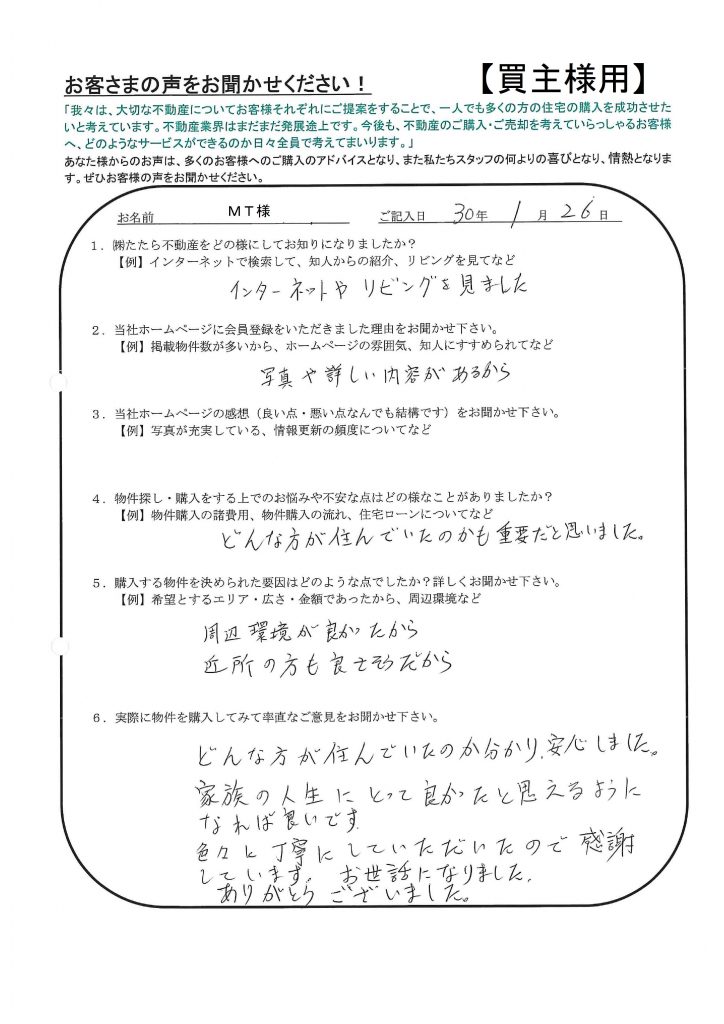 お客さまの声をお聞かせください！
【買主様用】
「我々は、大切な不動産についてお客様それぞれにご提案をすることで、一人でも多くの方の住宅の購入を成功させた
いと考えています。不動産業界はまだまだ発展途上です。今後も、不動産のご購入・ご売却を考えていらっしゃるお客様
へ、どのようなサービスができるのか日々全員で考えてまいります。」
あなた様からのお声は、多くのお客様へのご購入のアドバイスとなり、また私たちスタッフの何よりの喜びとなり、情熱となりま
す。ぜひお客様の声をお聞かせください。
お名前 ＭＴ様 ご記入日 30年 1月 26日
１．㈱たたら不動産をどの様にしてお知りになりましたか？
【例】インターネットで検索して、知人からの紹介、リビングを見てなど
インターネットや リビングを見ました
２．当社ホームページに会員登録をいただきました理由をお聞かせ下さい。
【例】掲載物件数が多いから、ホームページの雰囲気、知人にすすめられてなど
写真や詳しい内容があるから
３．当社ホームページの感想（良い点・悪い点なんでも結構です）をお聞かせ下さい。
【例】写真が充実している、情報更新の頻度についてなど
４．物件探し・購入をする上でのお悩みや不安な点はどの様なことがありましたか？
【例】物件購入の諸費用、物件購入の流れ、住宅ローンについてなど
どんな方が住んでいたのかも重要だと思いました。
５．購入する物件を決められた要因はどのような点でしたか？詳しくお聞かせ下さい。
【例】希望とするエリア・広さ・金額であったから、周辺環境など
周辺環境が良かったから
近所の方も良さそうだから
６．実際に物件を購入してみて率直なご意見をお聞かせ下さい。
どんな方が住んでいたのか分かり、安心しました。
家族の人生にとって良かったと思えるように
なれば良いです。
色々と丁寧にしていただいたので感謝
しています。 お世話になりました。
ありがとうございました。